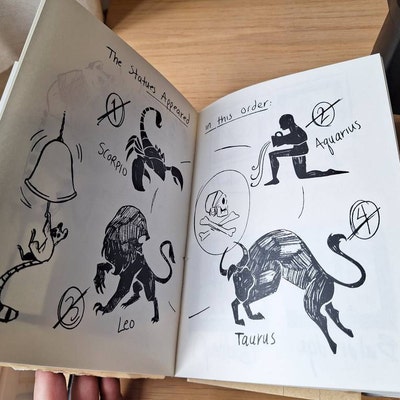 The Statues Appeared in this order:
1
SCORPIO
2
Aquarius
3
Leo
4
Taurus